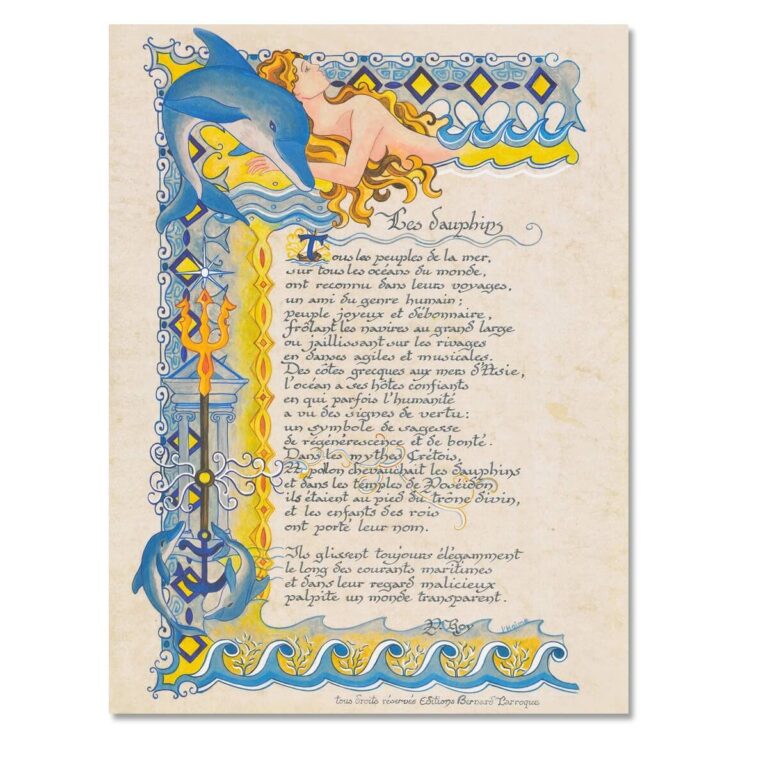 Les dauphins
Tous les peuples de la mer,
sur tous les océans du monde,
ont reconnu dans leurs voyages,
un ami du genre humain ;
peuple joyeux et débonnaire,
frôlant les navires au grand large
ou jaillissant sur les rivages
en danses agiles et musicales.
Des côtes grecques aux mers d'Asie,
l'océan a ses hôtes confiants
en qui parfois l'humanité
a vu des signes de vertu :
un symbole de sagesse
de régénérescence et de bonté.
Dans les mythes Crétois,
Apollon chevauchait les dauphins
et dans les temples de Poséidon
ils étaient au pied du trône divin,
et les enfants des rois
ont porté leur nom.
Ils glissent toujours élégamment
le long des courants maritimes
et dans leur regard malicieux
palpite un monde transparent.
P. Roy
tous droits réservés Editions Bernard Larroque